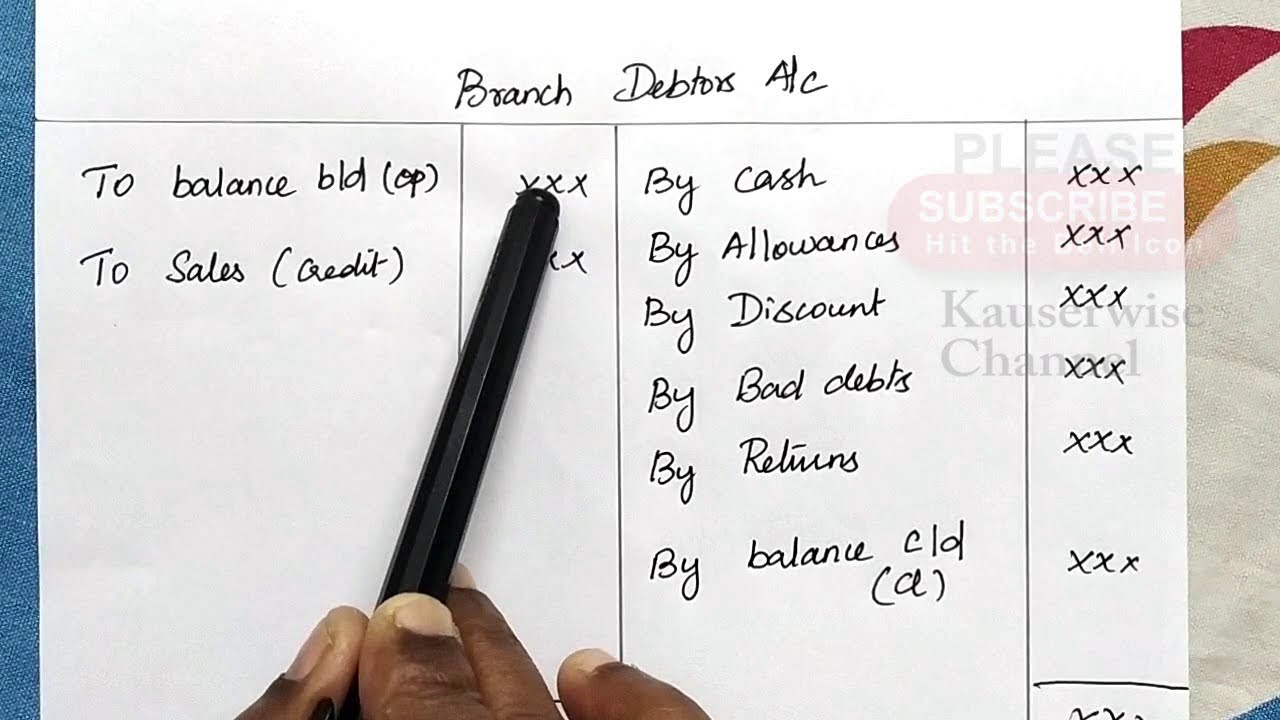 Branch Debtors A/c
To balance b/d (op) xxx By Cash xxx
To Sales (Credit) xx By Allowances xxx
By Discount xxx
By Bad debts xxx
By Returns xxx
By balance c/d xxx
(cl)
xxx
PLEASE
SUBSCRIBE
Hit the Bell Icon
Kauserwise
Channel